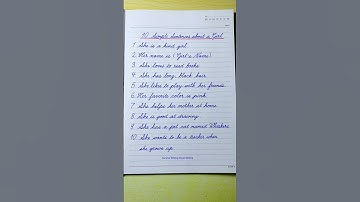 10 Simple Sentences about a Girl
1. She is a kind girl.
2. Her name is (Girl's Name)
3. She loves to read books.
4. She has long, black hair.
5. She likes to play with her friends.
6. Her favorite color is pink.
7. She helps her mother at home.
8. She is good at drawing.
9. She has a pet cat named Whiskers.
10. She wants to be a teacher when
she grows up.